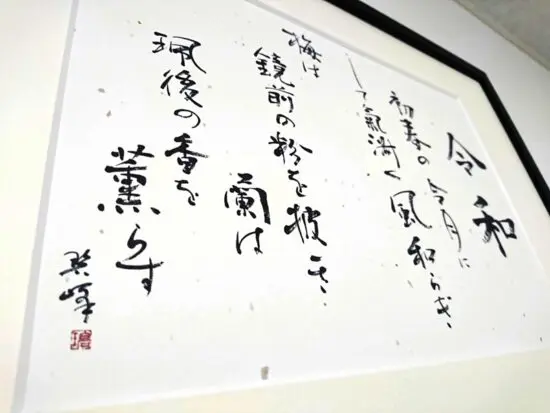 令和
初春の令月に
して氣淑く風和らぎ、
梅は
鏡前の粉を披き、
蘭は
珮後の香を
薫らす